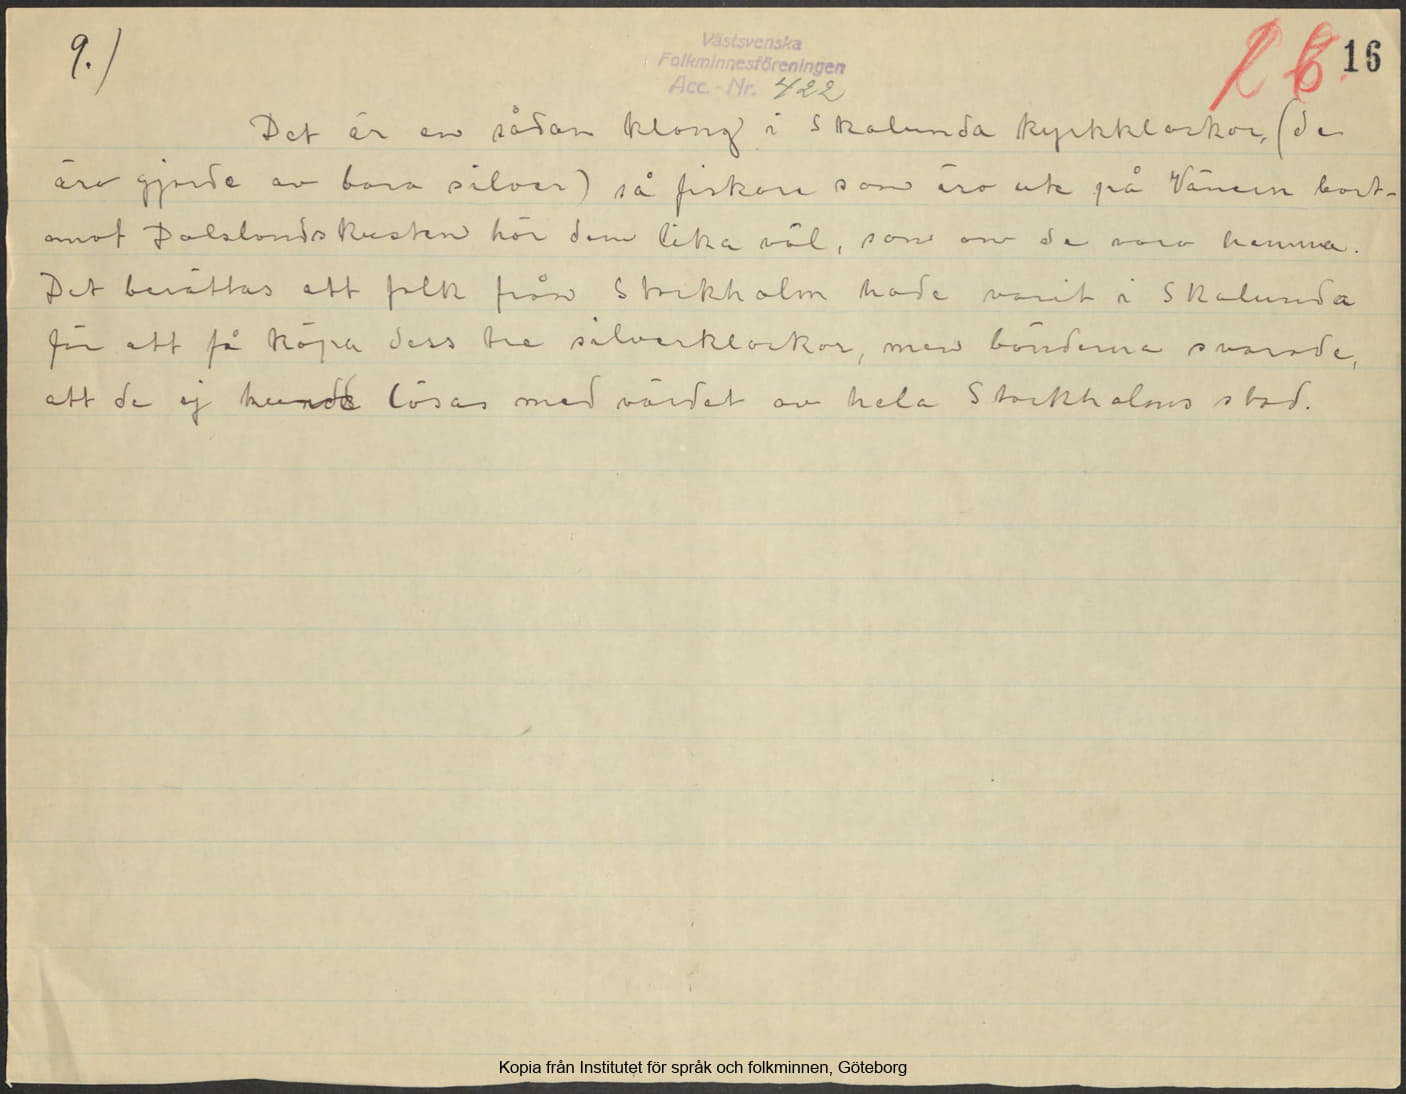 9.)
Västsvenska
Folkminnesföreningen
Acc. - Nr. 422
26.
16
Det är en sådan klang i Skalunda kyrkklockor, (de
äro gjorde av bara silver) så fiskare som äro ute på Vänern bort-
emot Dalslandskusten hör dem lika väl, som om de voro hemma.
Det berättas att folk från Stockholm hade varit i Skalunda
för att få köpa dess tre silverklockor, men bönderna svarade,
att de ej kunde lösas med värdet av hela Stockholms stad.
Kopia från Institutet för språk och folkminnen, Göteborg